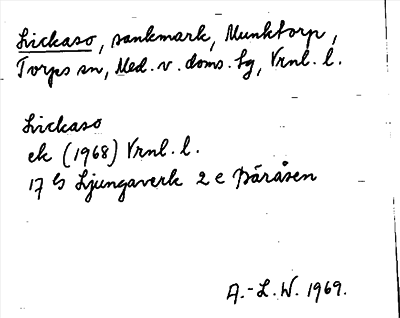 Lickaso, sankmark, Munktorp,
Torps sn, Med. v. doms. tg, Vrnl. l.
Lickaso
ek (1968) Vrnl. l.
17 G Ljungaverk 2 e Bäråsen
A.-L. W. 1969.